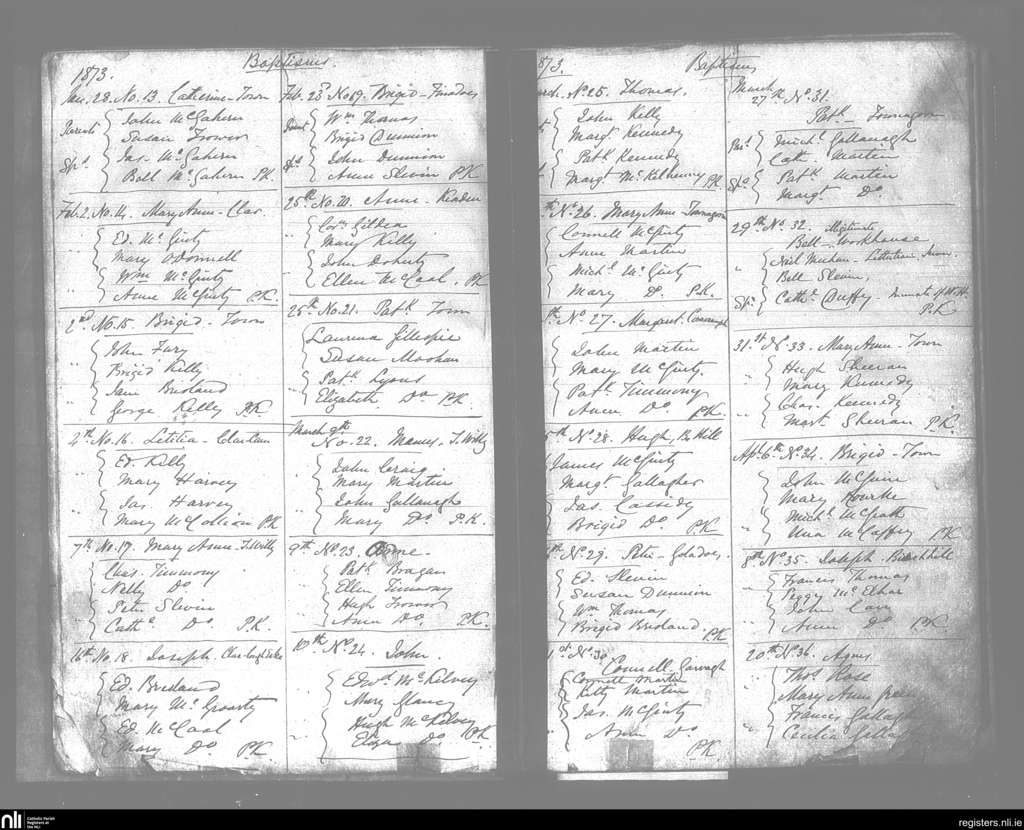 Baptisms.
1873.
Jan. 28. No. 13. Catherine - Town
Parents
John McGahern
Susan Trower
Sps.
Jas. McGahern
Bell McGahern P.K.
Feb. 2. No. 14. Mary Anne - Clar.
Ed. McGinty
Mary O'Donnell
Wm McGinty
Anne McGinty P.K.
2nd No. 15. Brigid - Town
John Fury
Brigid Kelly
Jane Breslaund
George Kelly P.K.
4th No. 16. Letitia -
Ed. Kelly
Mary Harvey
Jas Harvey
Mary McCollion P.K.
7th No. 17. Mary Anne - T. Willy
Chas. Timmony
Nelly Do
Peter Slevin
Cathe. Do. P.K.
16th No. 18. Joseph.
Ed. Breslaund
Mary McGroarty
Ed. McCaal
Mary Do P.K.
Feb. 23rd No 19. Brigid - Finadoos
Wm Thomas
Brigid Dunnion
Sps
John Dunnion
Anne Slevin P.K
25th No. 20. Anne - Keadew
Cors. Gildea
Mary Kelly
John Doherty
Ellen McCaal. P.K
25th No. 21. Patk Town
Laurence Gillespie
Susan Moohan
Patk Lyons
Elizabeth Do P.K.
March 9th
No. 22. Manus, T. Willy
John Craig
Mary Martin
John Gallanagh
Mary Do. P.K.
9th No. 23. Anne -
Patk Brogan
Ellen Timmony
Hugh Trower
Anne Do. P.K.
10th No. 24. John.
Edwd McKelvey
Mary Clancy
Hugh McKelvey
Eliza Do P.K.
73.
Baptisms
No. 25. Thomas.
John Kelly
Margt Kennedy
Patk Kennedy
Margt. McKelvenny P.K.
No. 26. Mary Anne - Tonragon
Connell McGinty
Anne Martin
Michl McGinty
Mary Do. P.K.
No 27. Margaret.
John Martin
Mary McGinty.
Patk Timmony
Anne Do P.K.
No 28. Hugh, the Hill
James McGinty
Margt Gallagher
Jas. Cassidy
Brigid Do. P.K.
No. 29. Peter - Goladoo.
Ed. Slevin
Susan Dunnion
Wm Thomas
Brigid Breslaund. P.K
No. 30
Connell - Garvagh
Connell Martin
Kitty Martin
Jas. McGinty
Anne Do
P.K
March
27th No. 31.
Patk - Tonragon
Par.
Michl Gallanagh
Cath. Martin
Sps
Patk Martin
Margt Do.
29th No. 32. Illegitimate
Bell - Workhouse
Neil Meehan -
Bell Slevin,
Sps.
Cathe. Duffy. Inmate of W.H.
P.K
31st No. 33. Mary Anne - Town
Hugh Sheeran
Mary Kennedy
Chas. Kennedy
Mart. Sheeran P.K.
Apl. 6th No. 34. Brigid - Town
John McGuire
Mary Rourke
Michl McGrath
Una McCaffrey P.K
8th No. 35. Joseph - Beechhill
Francis Thomas
Peggy McElhar
John Carr
Anne Do P.K.
20th No. 36. Agnes
Thos. Rose
Mary Anne
Francis
Cecilia
nli
Catholic Parish
Registers at
the NLI
registers.nli.ie